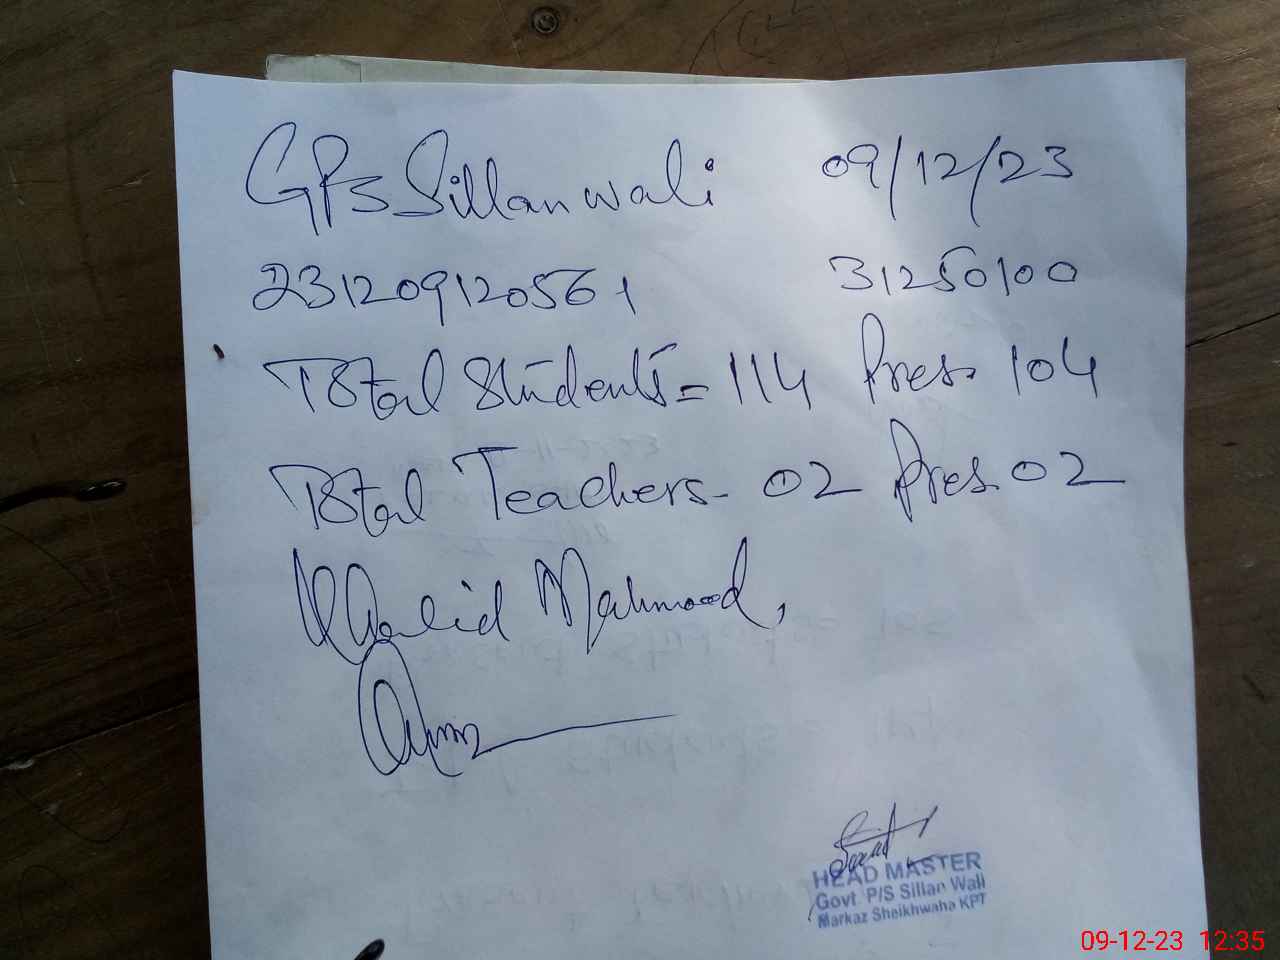 GPS Sillanwali 09/12/23
231209120561 31250100
Total Students = 114 Pres. 104
Total Teachers - 02 Pres. 02
Khalid Mahmood,
HEAD MASTER
Govt P/S Sillan Wali
Markaz Sheikhwaha KPT
09-12-23 12:35